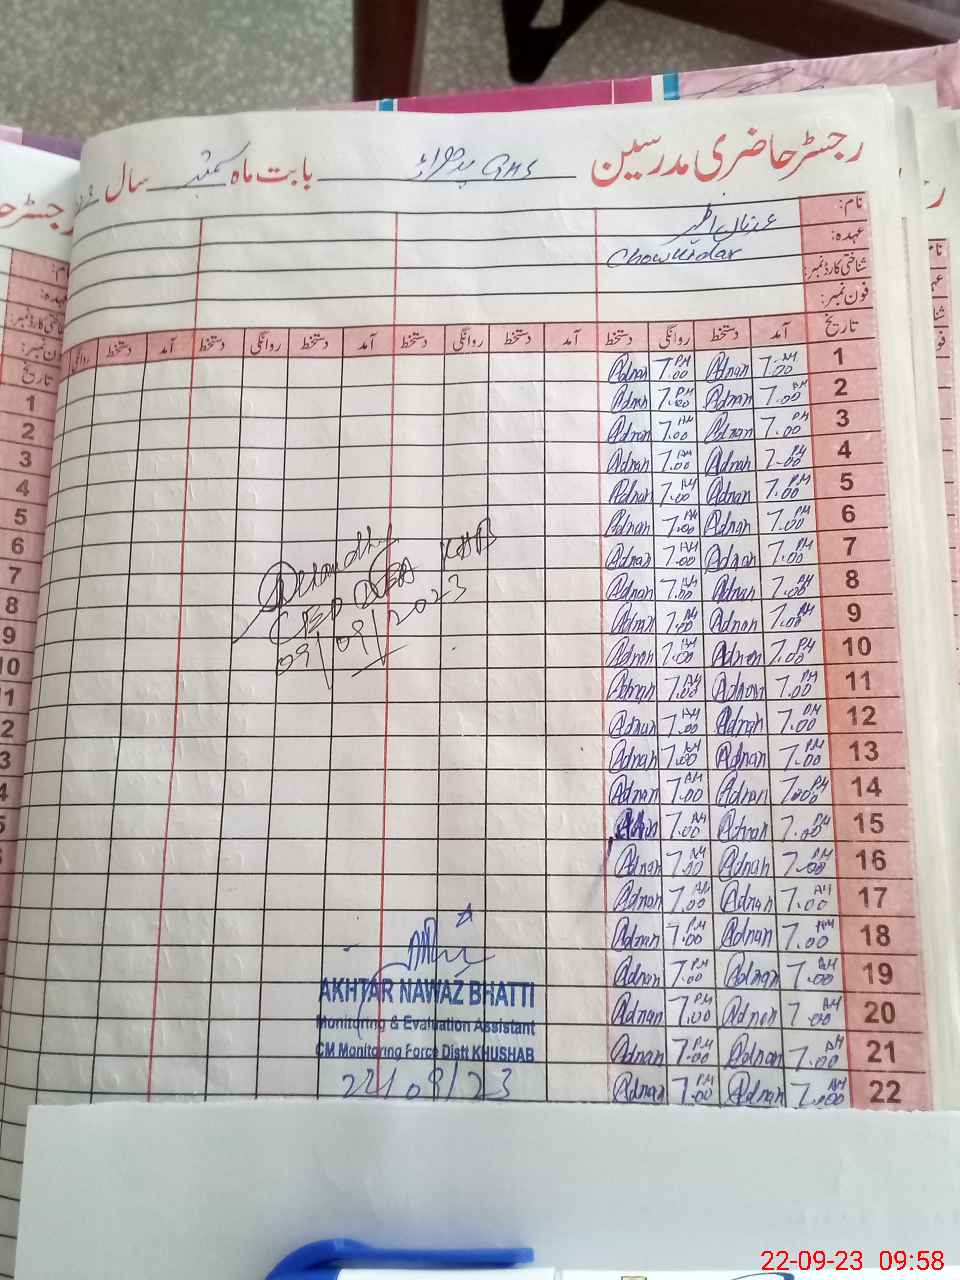 رجسٹر حاضری مدرسین GHS بابت ماہ ستمبر سال
نام: عدنان
عہدہ: Chowkidar
شناختی کارڈ نمبر:
فون نمبر:
تاریخ آمد دستخط روانگی دستخط آمد دستخط روانگی دستخط آمد دستخط روانگی دستخط آمد دستخط روانگی
1 7.00 AM Adnan 7.00 PM Adnan
2 7.00 AM Adnan 7.00 PM Adnan
3 7.00 PM Adnan 7.00 AM Adnan
4 7.00 PM Adnan 7.00 AM Adnan
5 7.00 PM Adnan 7.00 AM Adnan
6 7.00 PM Adnan 7.00 AM Adnan
7 7.00 PM Adnan 7.00 AM Adnan
8 7.00 Adnan 7.00 AM Adnan
9 7.00 Adnan 7.00 AM Adnan
10 7.00 PM Adnan 7.00 AM Adnan
11 7.00 PM Adnan 7.00 AM Adnan
12 7.00 PM Adnan 7.00 AM Adnan
13 7.00 PM Adnan 7.00 AM Adnan
14 7.00 PM Adnan 7.00 AM Adnan
15 7.00 PM Adnan 7.00 AM
16 7.00 PM Adnan 7.00 AM Adnan
17 7.00 AM Adnan 7.00 AM Adnan
18 7.00 AM Adnan 7.00 PM Adnan
19 7.00 AM Adnan 7.00 PM Adnan
20 7.00 AM Adnan 7.00 PM Adnan
21 7.00 AM Adnan 7.00 PM Adnan
22 7.00 AM Adnan 7.00 PM Adnan
CEO DEA KHB
09/09/2023
AKHTAR NAWAZ BHATTI
Monitoring & Evaluation Assistant
CM Monitoring Force Distt KHUSHAB
22/09/23
نام:
عہدہ:
شناختی کارڈ نمبر:
فون نمبر:
تاریخ
1
2
3
4
5
6
7
8
9
10
22-09-23 09:58